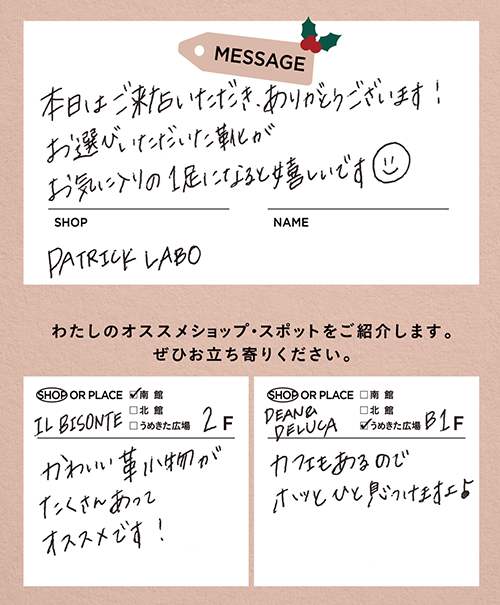 MESSAGE
本日はご来店いただき、ありがとうございます!
お選びいただいた靴が
お気に入りの1足になると嬉しいです
SHOP
NAME
PATRICK LABO
わたしのオススメショップ・スポットをご紹介します。
ぜひお立ち寄りください。
SHOP OR PLACE ☑南 館
□北 館
□うめきた広場
IL BISONTE
2F
かわいい革小物が
たくさんあって
オススメです!
SHOP OR PLACE □南 館
□北 館
☑うめきた広場
DEAN&
DELUCA
B1F
カフェもあるので
ホッとひと息つけますよ♪